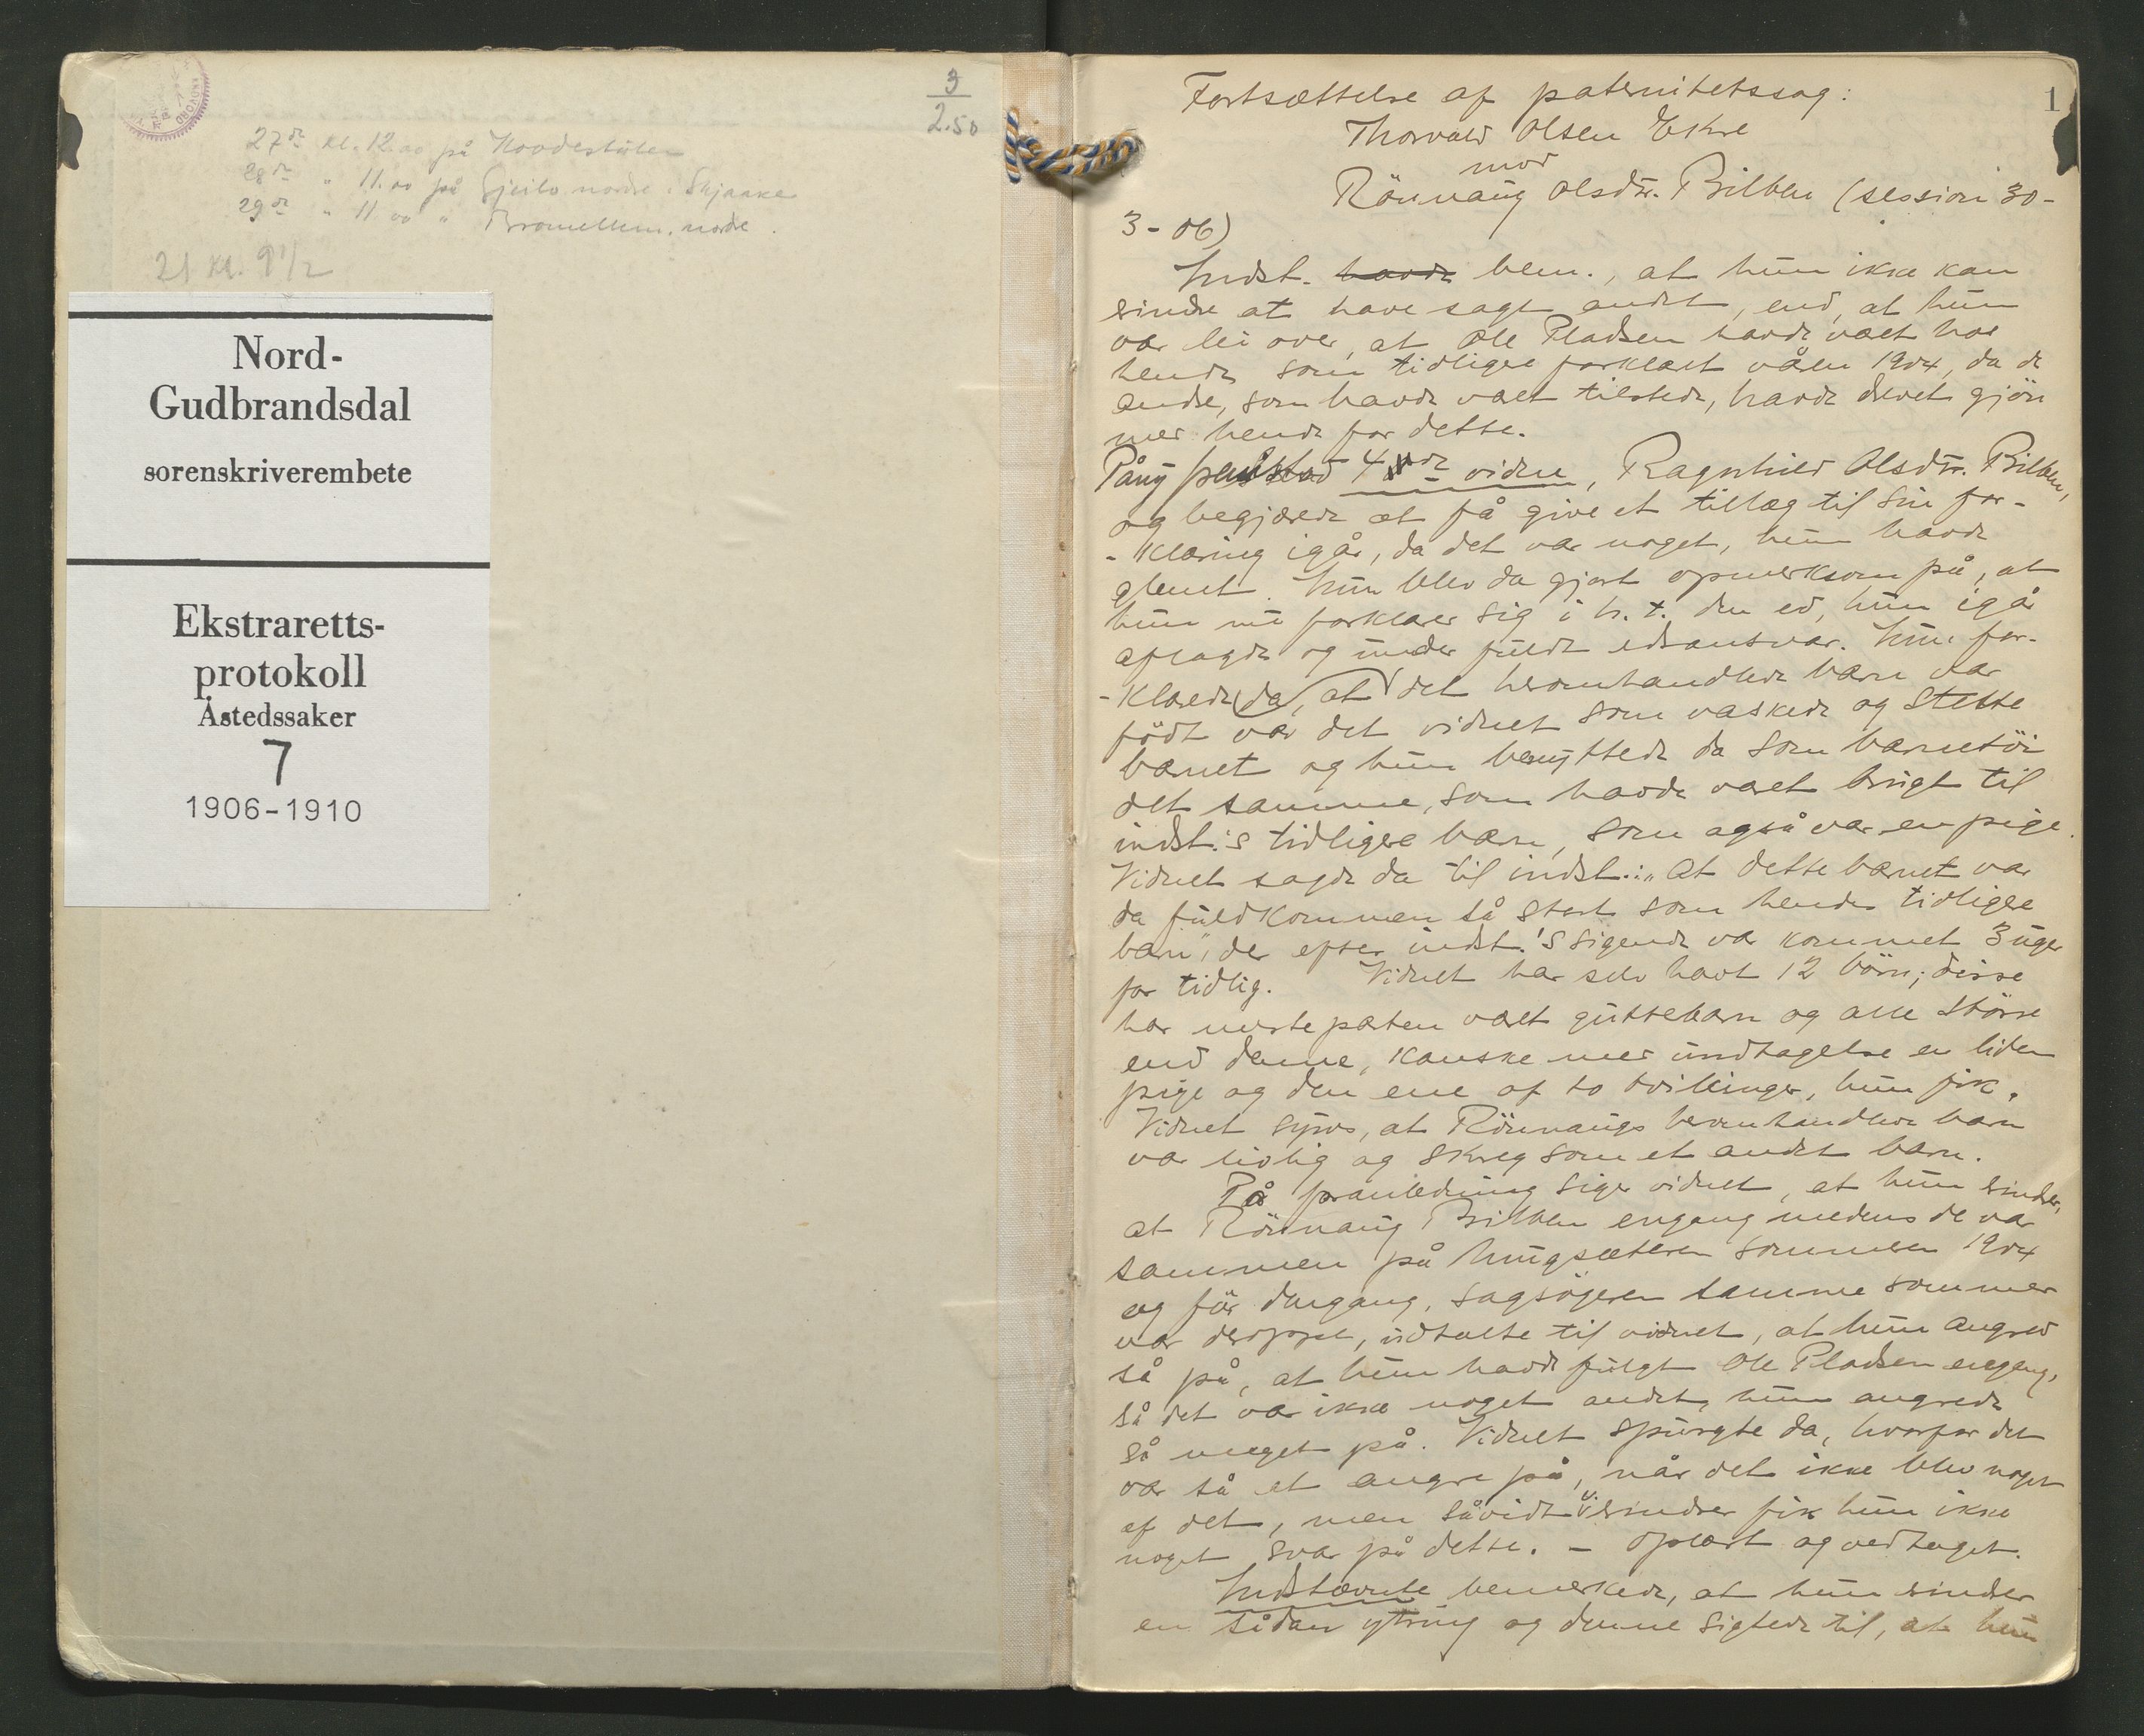 3
2.50
27de kl. 12.00 på
28de " 11.00 på Gjeilo nordre i Skjaake
29de " 11.00 " nordre.
21 kl. 9 1/2
Nord-
Gudbrandsdal
sorenskriverembete
Ekstraretts-
protokoll
Åstedssaker
7
1906-1910
1
Fortsættelse af paternitetssag:
Thorvald Olsen Ekre
mod
Rönnaug Olsdtr. Bilben (session 30-
3-06)
Indst. havde bem., at hun ikke kan
erindre at have sagt andet, end, at hun
var lei over, at Ole Pladsen havde været hos
hende som tidligere forklaret våren 1904, da de
andre, som havde været tilstede, havde drevet gjön
med hende for dette.
Påny fremstod 4de vidne, Ragnhild Olsdtr. Bilben,
og begjærede at få give et tillæg til sin for-
-klaring igår, da det var noget, hun havde
glemt. Hun blev da gjort opmerksom på, at
hun nu forklarer sig i h. t. den ed, hun igår
aflagde og under fuldt edsansvar. Hun for-
-klarede da, at det heromhandlede barn var
födt var det vidnet som vaskede og stelte
barnet og hun benyttede da som barnetöi
det samme, som havde været brugt til
indst.'s tidligere barn, som også var en pige.
Vidnet sagde da til indst.: "At dette barnet var
da fuldkommen så stort som hendes tidligere
barn", der efter indst.'s sigende var kommet 3 uger
for tidlig. Vidnet har selv havt 12 börn; disse
har mesteparten været guttebarn og alle större
end denne, kanske med undtagelse en liden
pige og den ene af to tvillinger, hun fik.
Vidnet synes, at Rönnaugs heromhandlede barn
var livlig og skreg som et andet barn.
På foranledning siger vidnet, at hun erindrer,
at Rönnaug Bilben engang medens de var
sammen på sæteren sommeren 1904
og för engang, sagsögeren samme sommer
var deroppe, udtalte til vidnet, at hun angred
så på, at hun havde fulgt Ole Pladsen engang,
så det var ikke noget andet, hun angrede
så meget på. Vidnet spurgte da, hvorfor det
var så at angre på, når det ikke blev noget
af det, men såvidt v. erindrer fik hun ikke
noget svar på dette. - Oplæst og vedtaget.
Indstævnte bemerkede, at hun erindrer
en sådan ytring og denne sigtede til, at hun